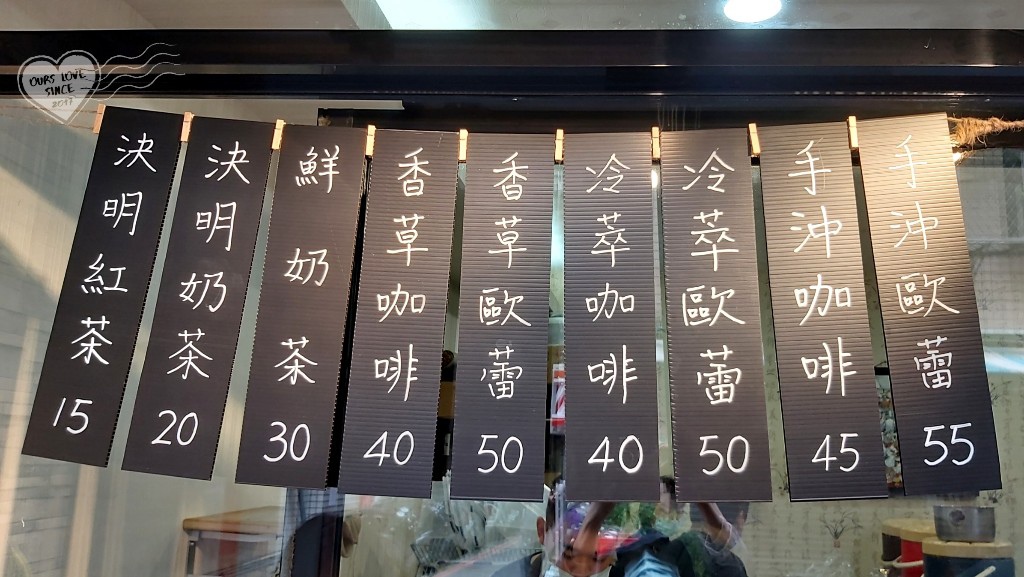 OURS LOVE
SINCE
2017
決明紅茶 15
決明奶茶 20
鮮奶茶 30
香草咖啡 40
香草歐蕾 50
冷萃咖啡 40
冷萃歐蕾 50
手沖咖啡 45
手沖歐蕾 55